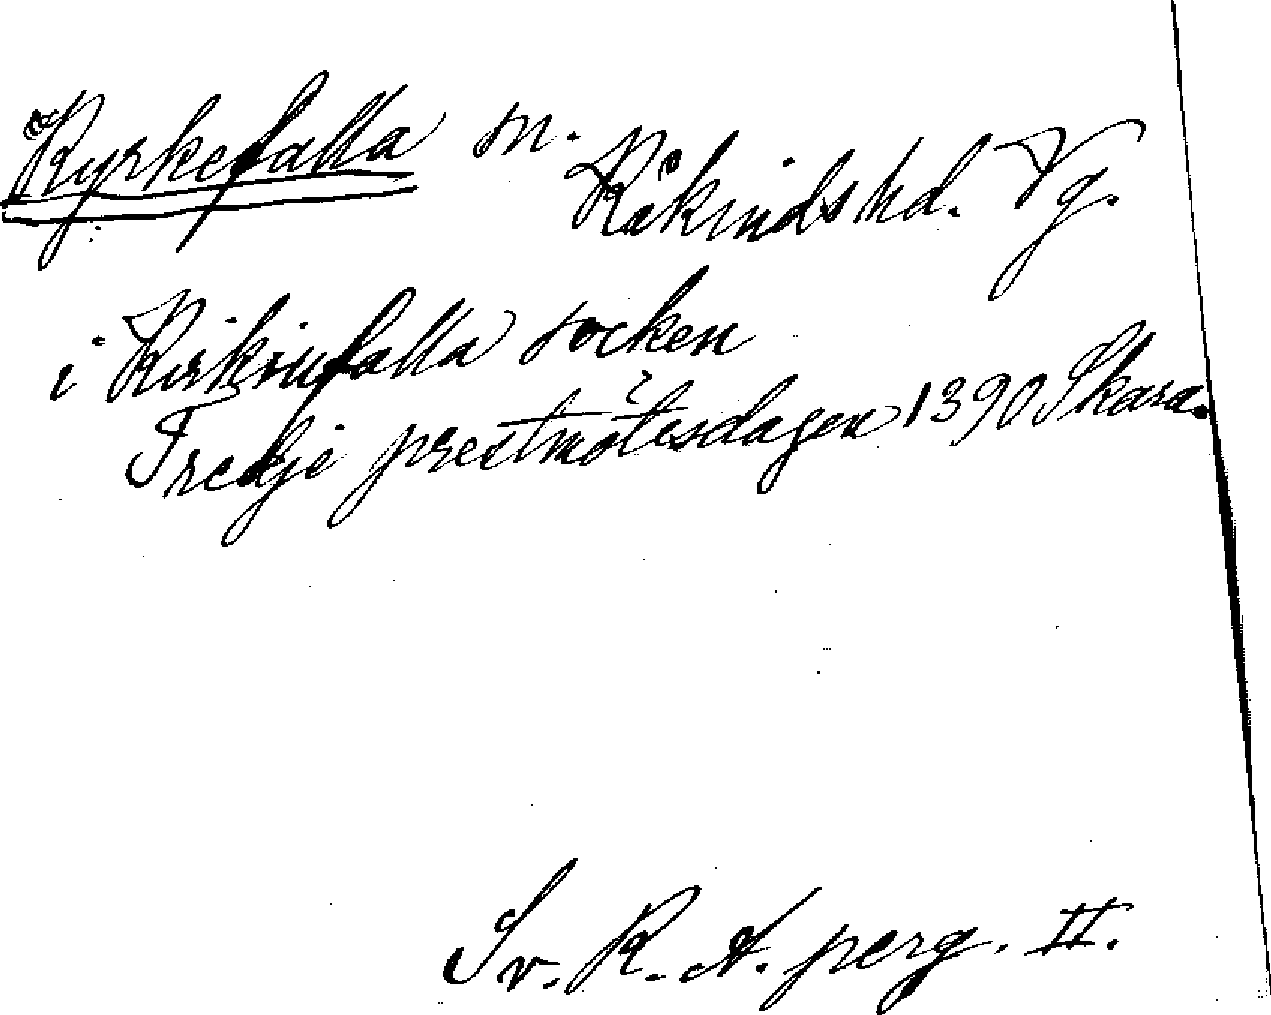 Kyrkefalla sn. Kåkinds hd. Vg.
i Kirkiufalla socken
Tredje prestmötisdagen 1390 Skara.
Sv. R. A. perg. II.